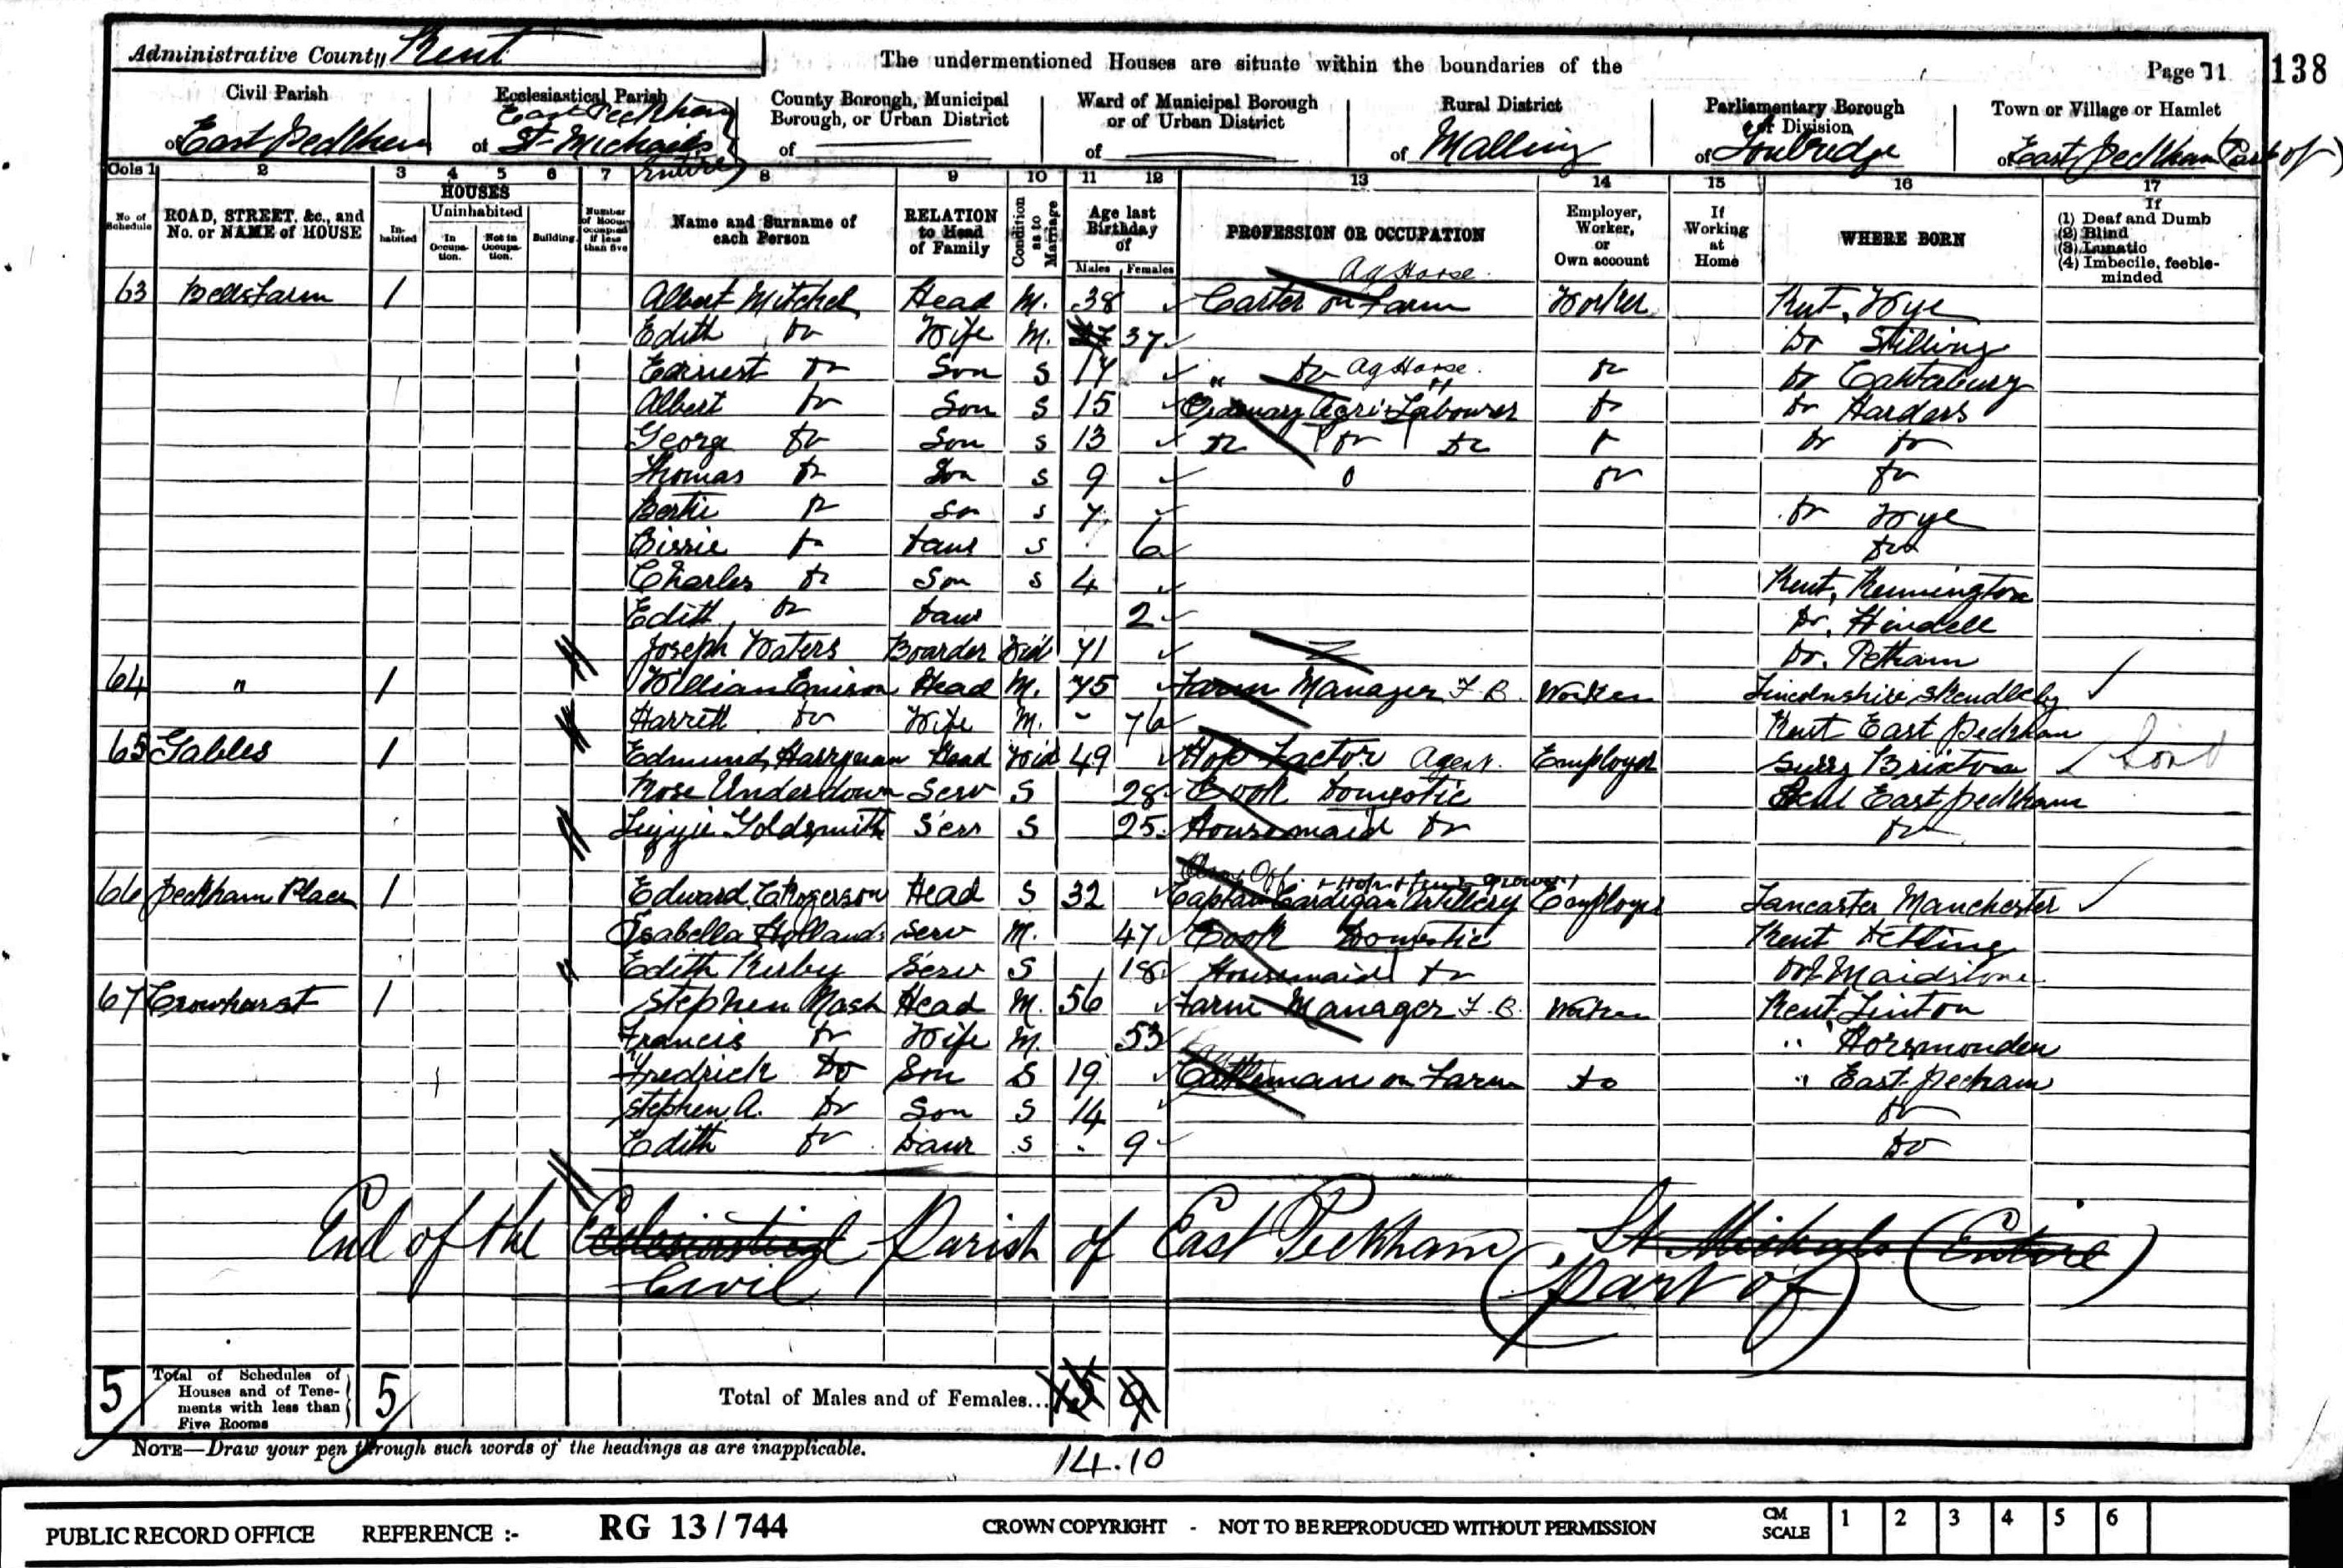 Administrative County Kent
The undermentioned Houses are situate within the boundaries of the
Page 11
138
Civil Parish of East Peckham
Ecclesiastical Parish of East Peckham St Michaels Entire
County Borough, Municipal Borough, or Urban District of
Ward of Municipal Borough or of Urban District of
Rural District of Malling
Parliamentary Borough or Division of Tonbridge
Town or Village or Hamlet of East Peckham (Part of)
Cols 1 2 3 4 5 6 7 8 9 10 11 12 13 14 15 16 17
No. of Schedule
ROAD, STREET, &c., and No. or NAME of HOUSE
HOUSES
Inhabited
Uninhabited
In Occupation.
Not in Occupation.
Building
Number of Rooms occupied if less than five
Name and Surname of each Person
RELATION to Head of Family
Condition as to Marriage
Age last Birthday of
Males Females
PROFESSION OR OCCUPATION
Employer, Worker, or Own account
If Working at Home
WHERE BORN
If
(1) Deaf and Dumb
(2) Blind
(3) Lunatic
(4) Imbecile, feeble-minded
Ag Horse
63 Bells Farm 1 Albert Mitchel Head M. 38 Carter on Farm Worker Kent, Wye
Edith do Wife M. 37 Do
Earnest do Son S 17 " do Ag Horse do Do Canterbury
Albert do Son S 15 Ordinary Agri Labourer do do Hardres
George do Son S 13 do do do do do
Thomas do Son S 9 do do
Bertie do Son S 7 do Wye
Cissie do Daur S 6 do
Charles do Son S 4 Kent, Kennington
Edith do Daur 2 Do.
Joseph Waters Boarder Wid 71 Do. Petham
64 " 1 William Head M. 75 Farm Manager F. B. Worker Lincolnshire
Harrett do Wife M. - 76 Kent East Peckham
65 Gables 1 Edmund Harryman Head Wid 49 Hop Factor Agent Employer Surry Brixton
Rose Underdown Serv S 28 Cook Domestic Kent East Peckham
Lizzie Goldsmith Serv S 25 Housemaid do do
Army Off. + Hop + fruit grower
66 Peckham Place 1 Edward C Rogerson Head S 32 Captain Cardigan Artillery Employer Lancaster Manchester
Isabella Hollands Serv M. 47 Cook Domestic Kent Detling
Edith Kirby Serv S 18 Housemaid do Do Maidstone
67 Crowhurst 1 Stephen Nash Head M. 56 Farm Manager F. B. Worker Kent Linton
Francis do Wife M. 53 " Horsmonden
Fredrick Do Son S 19 Cattleman on Farm do " East Pecham
Stephen A. do Son S 14 do
Edith do Daur S - 9 do
End of the Ecclesiastical Parish of East Peckham St Michaels (Entire)
Civil (Part of)
5 Total of Schedules of Houses and of Tenements with less than Five Rooms 5 Total of Males and of Females...
NOTE—Draw your pen through such words of the headings as are inapplicable.
14. 10
PUBLIC RECORD OFFICE REFERENCE :- RG 13 / 744 CROWN COPYRIGHT - NOT TO BE REPRODUCED WITHOUT PERMISSION CM SCALE 1 2 3 4 5 6